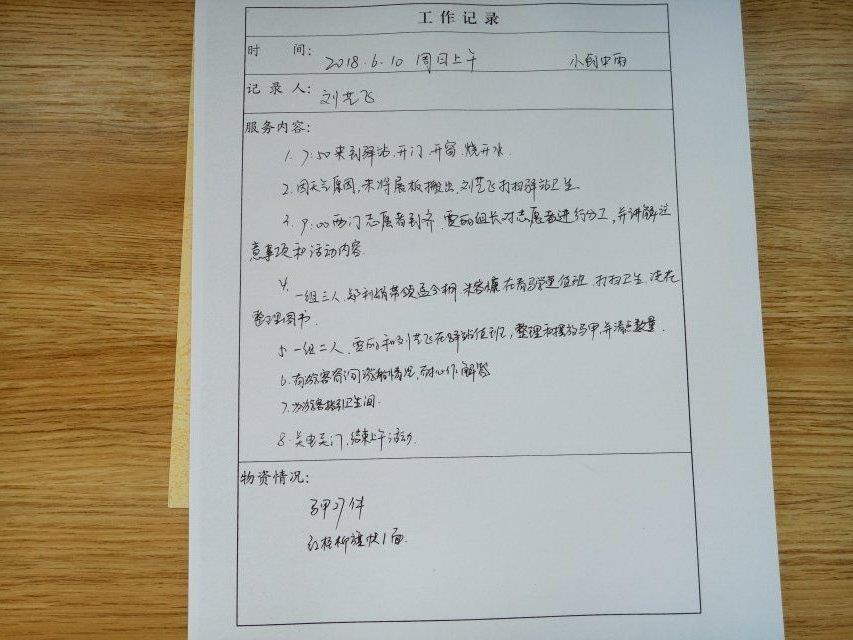 工作记录
时 间: 2018.6.10 周日上午 小到中雨
记录人: 刘艺飞
服务内容:
1. 7:50来到驿站,开门 开窗 烧开水.
2. 因天气原因,未将展板搬出,刘艺飞打扫驿站卫生
3. 9:00两门志愿者到齐 雯丽组长对志愿者进行分工,并讲解注
意事项和活动内容.
4. 一组三人 带领 值班. 打扫卫生
整理图书.
5. 一组二人,雯丽和刘艺飞在驿站值班,整理和摆放马甲,并清点数量.
6. 有游客咨询游船情况,耐心作解答
7. 为游客指引卫生间.
8. 关电关门,结束上午活动.
物资情况:
马甲27件
红柳旗帜1面.